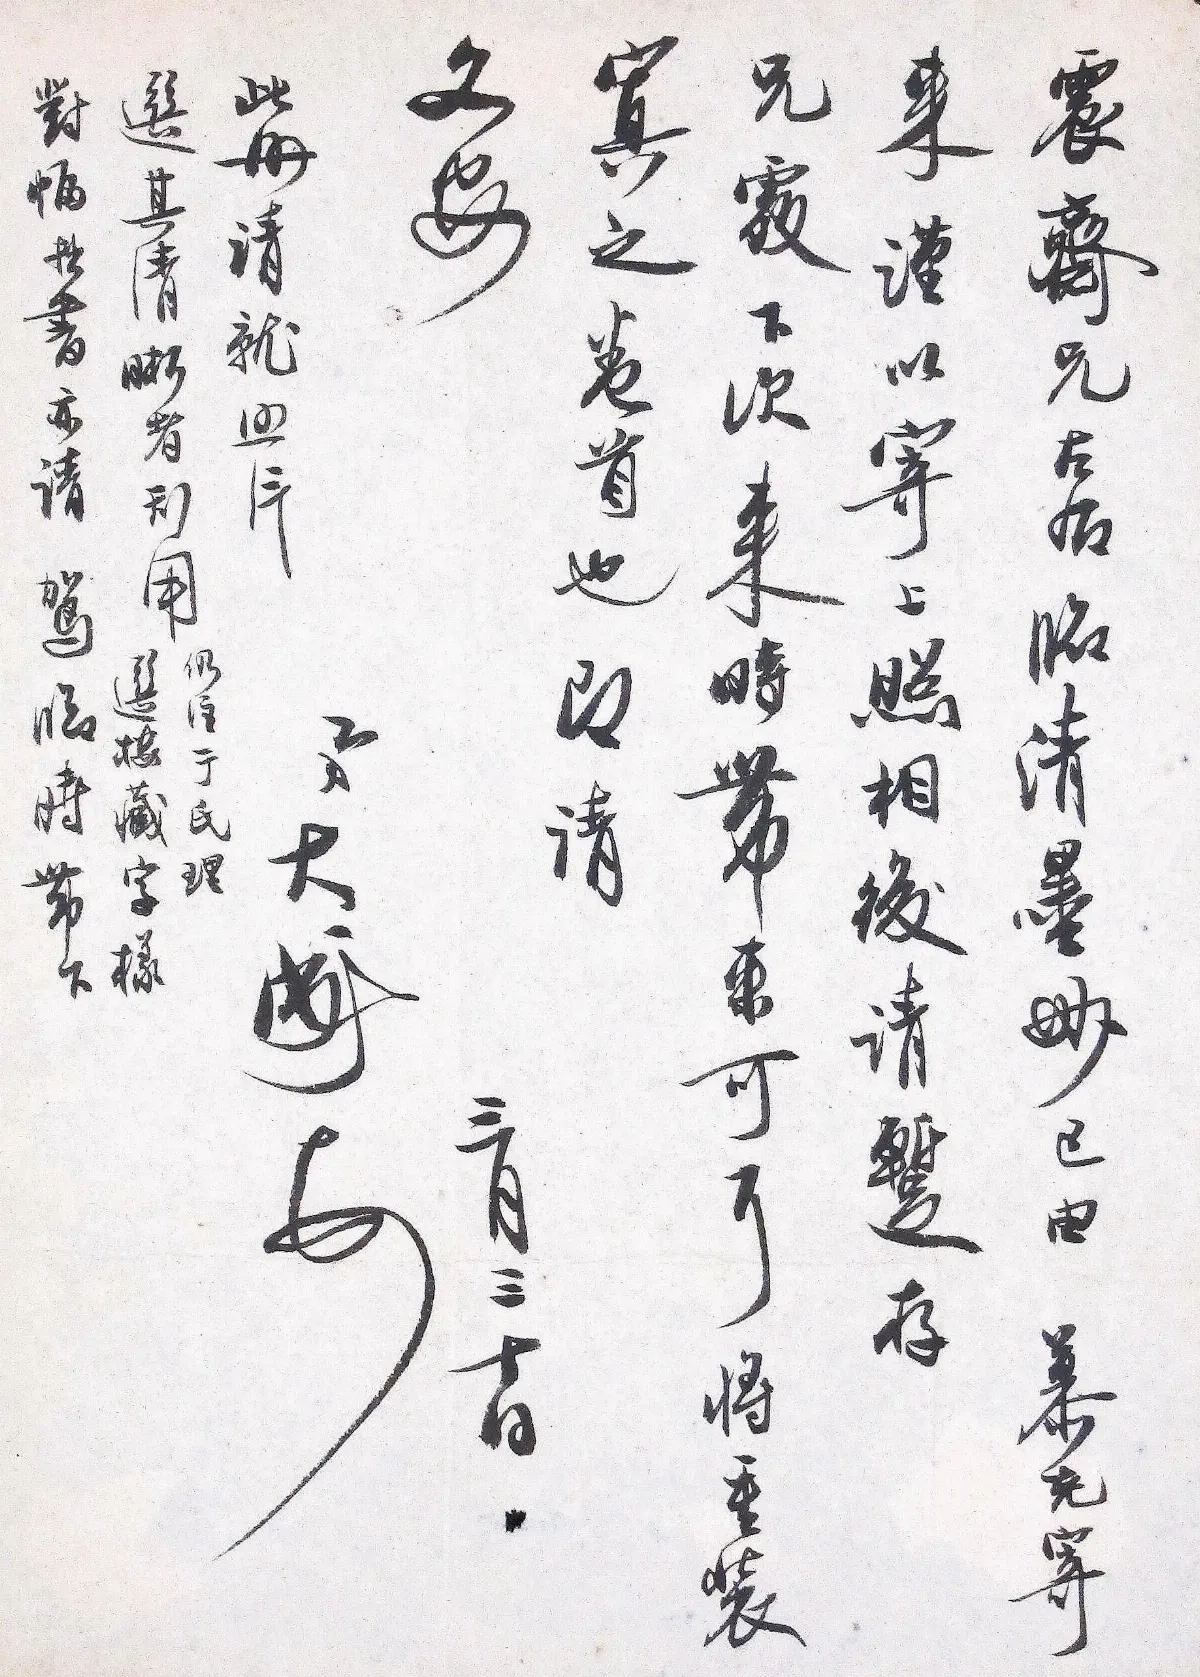 震齋兄左右臨清墨妙已由慕兄寄
来謹以寄上照相後請暫存
兄處下次来時帶来可可將重裝
寘之卷首也即請
文安
弟大
三月三十日
此册請就照片
選其清晰者刊用
仍注于氏理
選樓藏字樣
對幅拙書亦請駕臨時帶下